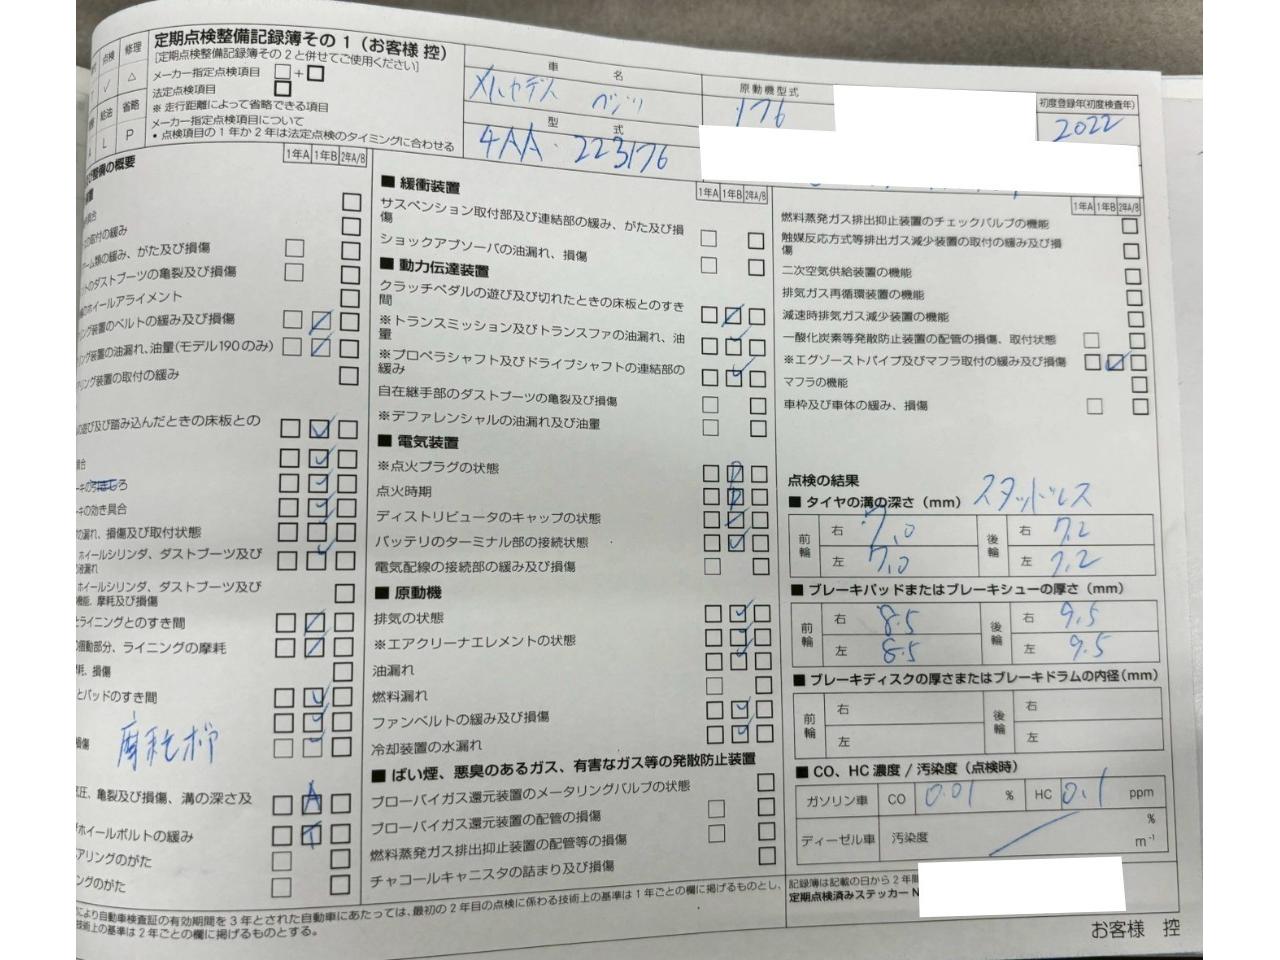 定期点検整備記録簿その1(お客様 控)
[定期点検整備記録簿その2と併せてご使用ください]
メーカー指定点検項目 □+□
法定点検項目 □
※ 走行距離によって省略できる項目
メーカー指定点検項目について
• 点検項目の1年か2年は法定点検のタイミングに合わせる
点検 修理
✓ △
給油 省略
L P
車 名
メルセデス ベンツ
型 式
4AA-223176
原動機型式
176
初度登録年(初度検査年)
2022
整備の概要
1年A 1年B 2年A/B
の取付の緩み
アーム類の緩み、がた及び損傷
ントのダストブーツの亀裂及び損傷
ホイールアライメント
リング装置のベルトの緩み及び損傷
リング装置の油漏れ、油量(モデル190のみ)
アリング装置の取付の緩み
の遊び及び踏み込んだときの床板との
具合
ーキの引きしろ
ーキの効き具合
の漏れ、損傷及び取付状態
ホイールシリンダ、ダストブーツ及び
液漏れ
ホイールシリンダ、ダストブーツ及び
機能、摩耗及び損傷
とライニングとのすき間
の摺動部分、ライニングの摩耗
耗、損傷
とパッドのすき間
損傷
圧、亀裂及び損傷、溝の深さ及
びホイールボルトの緩み
A
T
アリングのがた
ングのがた
■ 緩衝装置
1年A 1年B 2年A/B
サスペンション取付部及び連結部の緩み、がた及び損
傷
ショックアブソーバの油漏れ、損傷
■ 動力伝達装置
クラッチペダルの遊び及び切れたときの床板とのすき
間
※トランスミッション及びトランスファの油漏れ、油
量
※プロペラシャフト及びドライブシャフトの連結部の
緩み
自在継手部のダストブーツの亀裂及び損傷
※デファレンシャルの油漏れ及び油量
■ 電気装置
※点火プラグの状態
点火時期
ディストリビュータのキャップの状態
バッテリのターミナル部の接続状態
電気配線の接続部の緩み及び損傷
■ 原動機
排気の状態
※エアクリーナエレメントの状態
油漏れ
燃料漏れ
ファンベルトの緩み及び損傷
冷却装置の水漏れ
■ ばい煙、悪臭のあるガス、有害なガス等の発散防止装置
ブローバイガス還元装置のメータリングバルブの状態
ブローバイガス還元装置の配管の損傷
燃料蒸発ガス排出抑止装置の配管等の損傷
チャコールキャニスタの詰まり及び損傷
1年A 1年B 2年A/B
燃料蒸発ガス排出抑止装置のチェックバルブの機能
触媒反応方式等排出ガス減少装置の取付の緩み及び損
傷
二次空気供給装置の機能
排気ガス再循環装置の機能
減速時排気ガス減少装置の機能
一酸化炭素等発散防止装置の配管の損傷、取付状態
※エグゾーストパイプ及びマフラ取付の緩み及び損傷
マフラの機能
車枠及び車体の緩み、損傷
点検の結果
■ タイヤの溝の深さ(mm) スタッドレス
前輪 右 7.0 後輪 右 7.2
左 7.0 左 7.2
■ ブレーキパッドまたはブレーキシューの厚さ(mm)
前輪 右 8.5 後輪 右 9.5
左 8.5 左 9.5
■ ブレーキディスクの厚さまたはブレーキドラムの内径(mm)
前輪 右 後輪 右
左 左
■ CO、HC濃度/汚染度(点検時)
ガソリン車 CO 0.01 % HC 0.1 ppm
ディーゼル車 汚染度 % m⁻¹
記録簿は記載の日から2年間
定期点検済みステッカー N
により自動車検査証の有効期間を3年とされた自動車にあたっては、最初の2年目の点検に係わる技術上の基準は1年ごとの欄に掲げるものとし、
技術上の基準は2年ごとの欄に掲げるものとする。
お客様 控